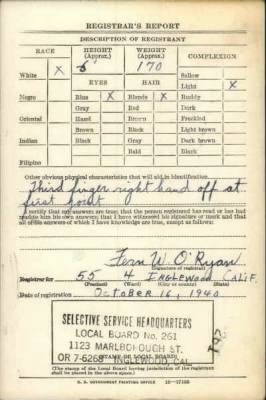 REGISTRAR'S REPORT
DESCRIPTION OF REGISTRANT
RACE HEIGHT (Approx.) WEIGHT (Approx.) COMPLEXION
White X 5 170 Sallow
EYES HAIR Light X
Negro Blue X Blonde X Ruddy
Gray Red Dark
Oriental Hazel Brown Freckled
Brown Black Light brown
Indian Black Gray Dark brown
Bald Black
Filipino
Other obvious physical characteristics that will aid in identification
Third finger right hand off at
first joint
I certify that my answers are true; that the person registered has read or has had
read to him his own answers; that I have witnessed his signature or mark and that
all of his answers of which I have knowledge are true, except as follows:
Fern W. O'Ryan
(Signature of registrar)
Registrar for 55 4 INGLEWOOD CALIF
(Precinct) (Ward) (City or county) (State)
Date of registration OCTOBER 16, 1940
SELECTIVE SERVICE HEADQUARTERS
LOCAL BOARD No. 261
1123 MARLBOROUGH ST.
OR 7-6268 INGLEWOOD, CAL
(STAMP OF LOCAL BOARD)
(The stamp of the Local Board having jurisdiction of the registrant
shall be placed in the above space.)
U. S. GOVERNMENT PRINTING OFFICE 16-17105